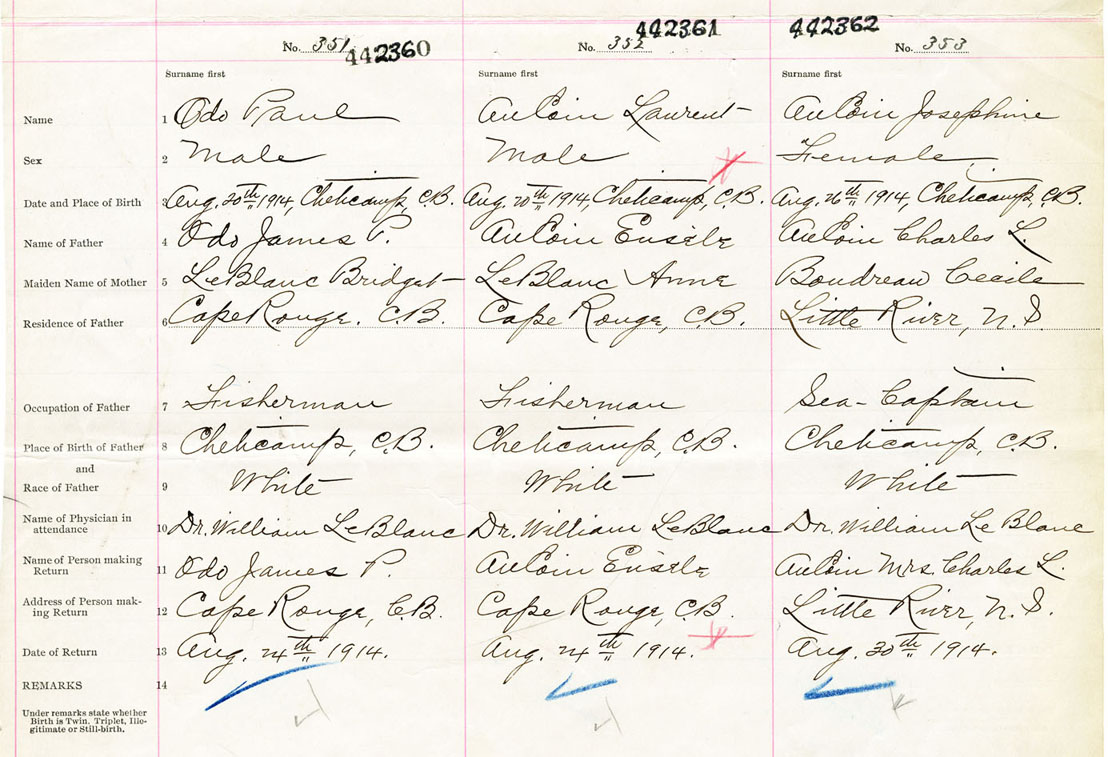 442361 442362
No. 351 442360 No. 352 No. 353
Surname first Surname first Surname first
Name 1 Odo Paul AuCoin Laurent AuCoin Josephine
Sex 2 Male Male Female
Date and Place of Birth 3 Aug. 20th 1914, Cheticamp, C.B. Aug. 20th 1914, Cheticamp, C.B. Aug. 26th 1914, Cheticamp, C.B.
Name of Father 4 Odo James P. AuCoin Eusèbe AuCoin Charles L.
Maiden Name of Mother 5 LeBlanc Bridget LeBlanc Anne Boudreau Cecile
Residence of Father 6 Cape Rouge. C.B. Cape Rouge, C.B. Little River, N.S.
Occupation of Father 7 Fisherman Fisherman Sea-Captain
Place of Birth of Father 8 Cheticamp, C.B. Cheticamp, C.B. Cheticamp, C.B.
and
Race of Father 9 White White White
Name of Physician in
attendance 10 Dr. William LeBlanc Dr. William LeBlanc Dr. William Le Blanc
Name of Person making
Return 11 Odo James P. AuCoin Eusèbe AuCoin Mrs. Charles L.
Address of Person mak-
ing Return 12 Cape Rouge, C.B. Cape Rouge, C.B. Little River, N.S.
Date of Return 13 Aug. 24th 1914. Aug. 24th 1914. Aug. 30th 1914.
REMARKS 14
Under remarks state whether
Birth is Twin. Triplet, Ille-
gitimate or Still-birth.